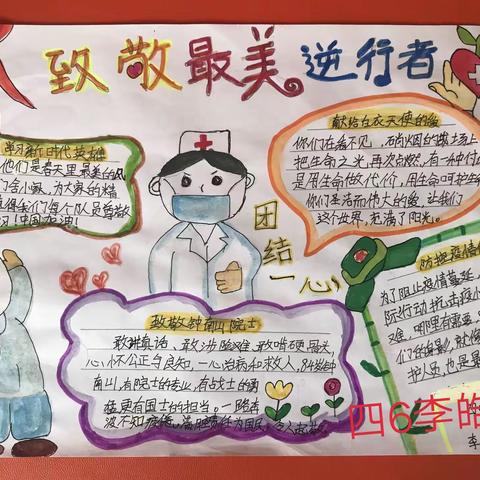 致敬最美逆行者
学习新时代英雄
他们是春天里最美的风
献给白衣天使的爱
你们在看不见硝烟的战场上
把生命之光,再次点燃,有一种付出
是用生命做代价,用生命呵护生命
你们是活动伟大的爱,让我们
这个世界,充满了阳光。
团结一心
防控疫情
为了阻止疫情蔓延
际行动抗击疫
难,哪里有需要
们的身影,就像
护人员也是最
致敬钟南山院士
敢讲真话、敢涉险难、敢啃硬骨头,
心怀公正与良知,一心治病和救人,84岁钟
南山,有院士的专业,有战士的勇
更有国士的担当。一路奔
波不知疲倦,满腔责任为国民,令人起敬
四6李皓
李